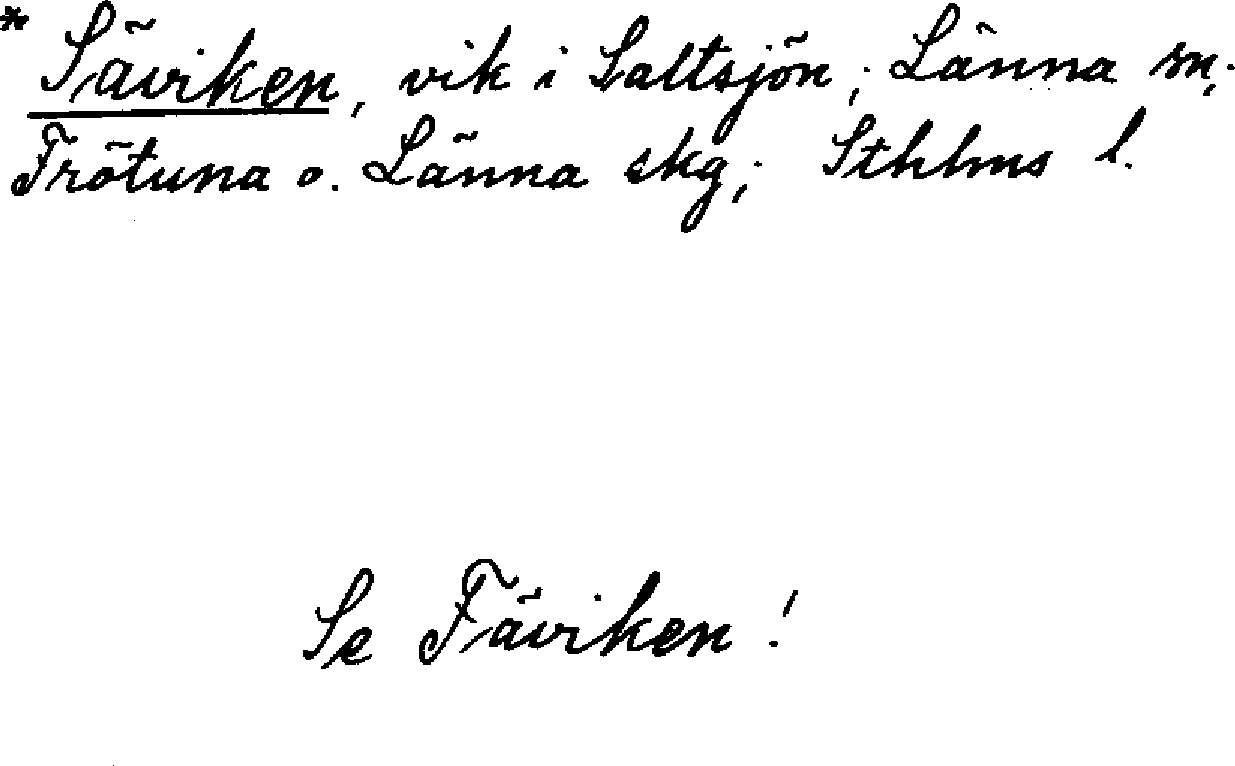 * Säviken, vik i Saltsjön; Länna sn;
Frötuna o. Länna skg; Sthlms l.
Se Fäviken!